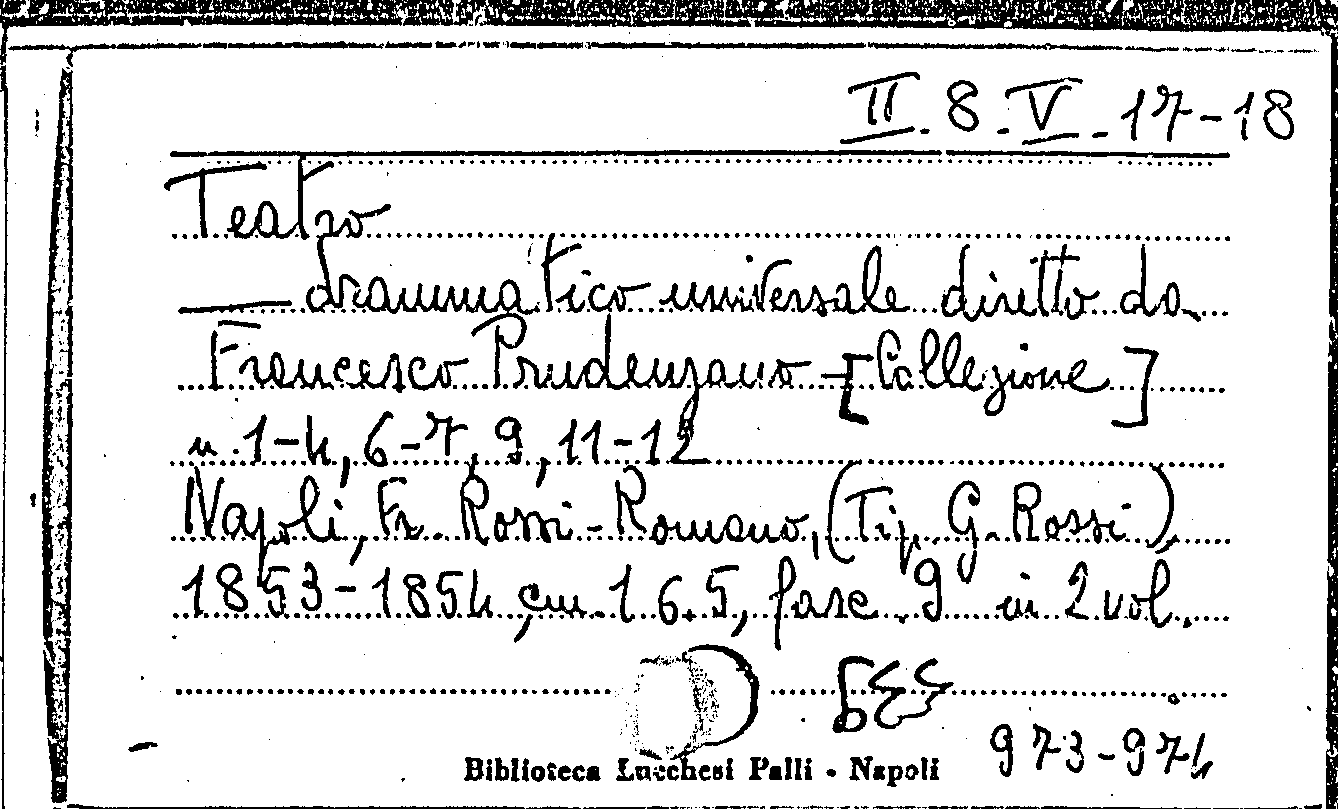 II. 8. V. 17-18
Teatro
— drammatico universale diretto da
Francesco Prudenzano - [Collezione]
n. 1-4, 6-7, 9, 11-12
Napoli, Fr. Rossi-Romano, (Tip. G. Rossi),
1853-1854, cm. 16.5, fasc. 9 in 2 vol.
973-974
Biblioteca Lucchesi Palli - Napoli